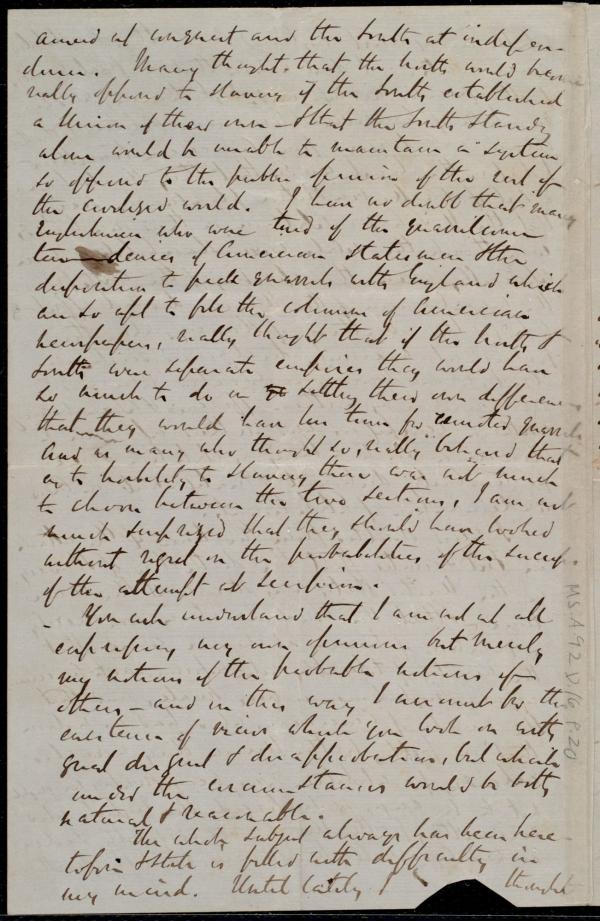 aimed at conquest and the South at indepen-
dence. Many thought that the North would become
really opposed to slavery if the South established
a Union of their own – & that the South standing
alone would be unable to maintain a system
so opposed to the public opinion of the rest of
the civilized world. I have no doubt that many
Englishmen who were tired of the quarrelsome
tendencies of American statesmen & the
disposition to pick quarrels with England which
are so apt to fill the columns of American
newspapers, really thought that if the North &
South were separate empires they would have
so much to do in settling their own differences
that they would have less time for remoter quarrels
And as many who thought so, really believed that
as to hostility to slavery there was not much
to choose between the two sections, I am not
much surprized that they should have looked
without regret on the probabilities of the success
of the attempt at secession.
– You will understand that I am not at all
expressing my own opinions but merely
my notions of the probable notions of
others – and in this way I account for the
existence of views which you look on with
great disgust & disapprobation, but which
under the circumstances would be both
natural & reasonable.
The whole subject always has been here-
tofore & still is filled with difficulty in
my mind. Until lately I thought
MS.A.9.2 v.16 p.20